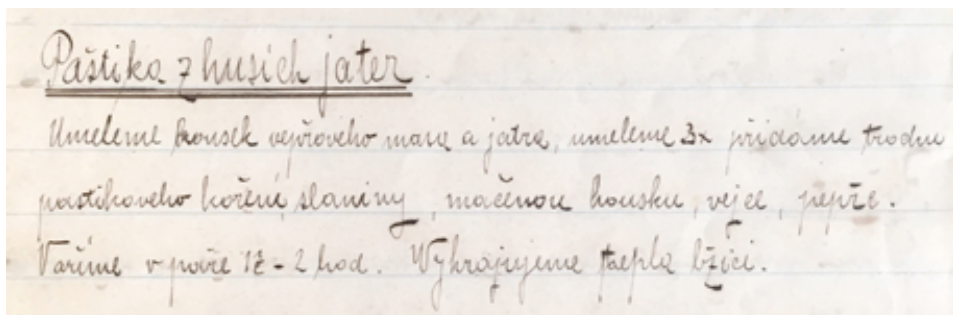 Paštika z husích jater
Umeleme kousek vepřového masa a jatra, umeleme 3x přidáme trochu
paštikového koření, slaniny, máčenou housku, vejce, pepře.
Vaříme v páře 1½ - 2 hod. teplá lžící.